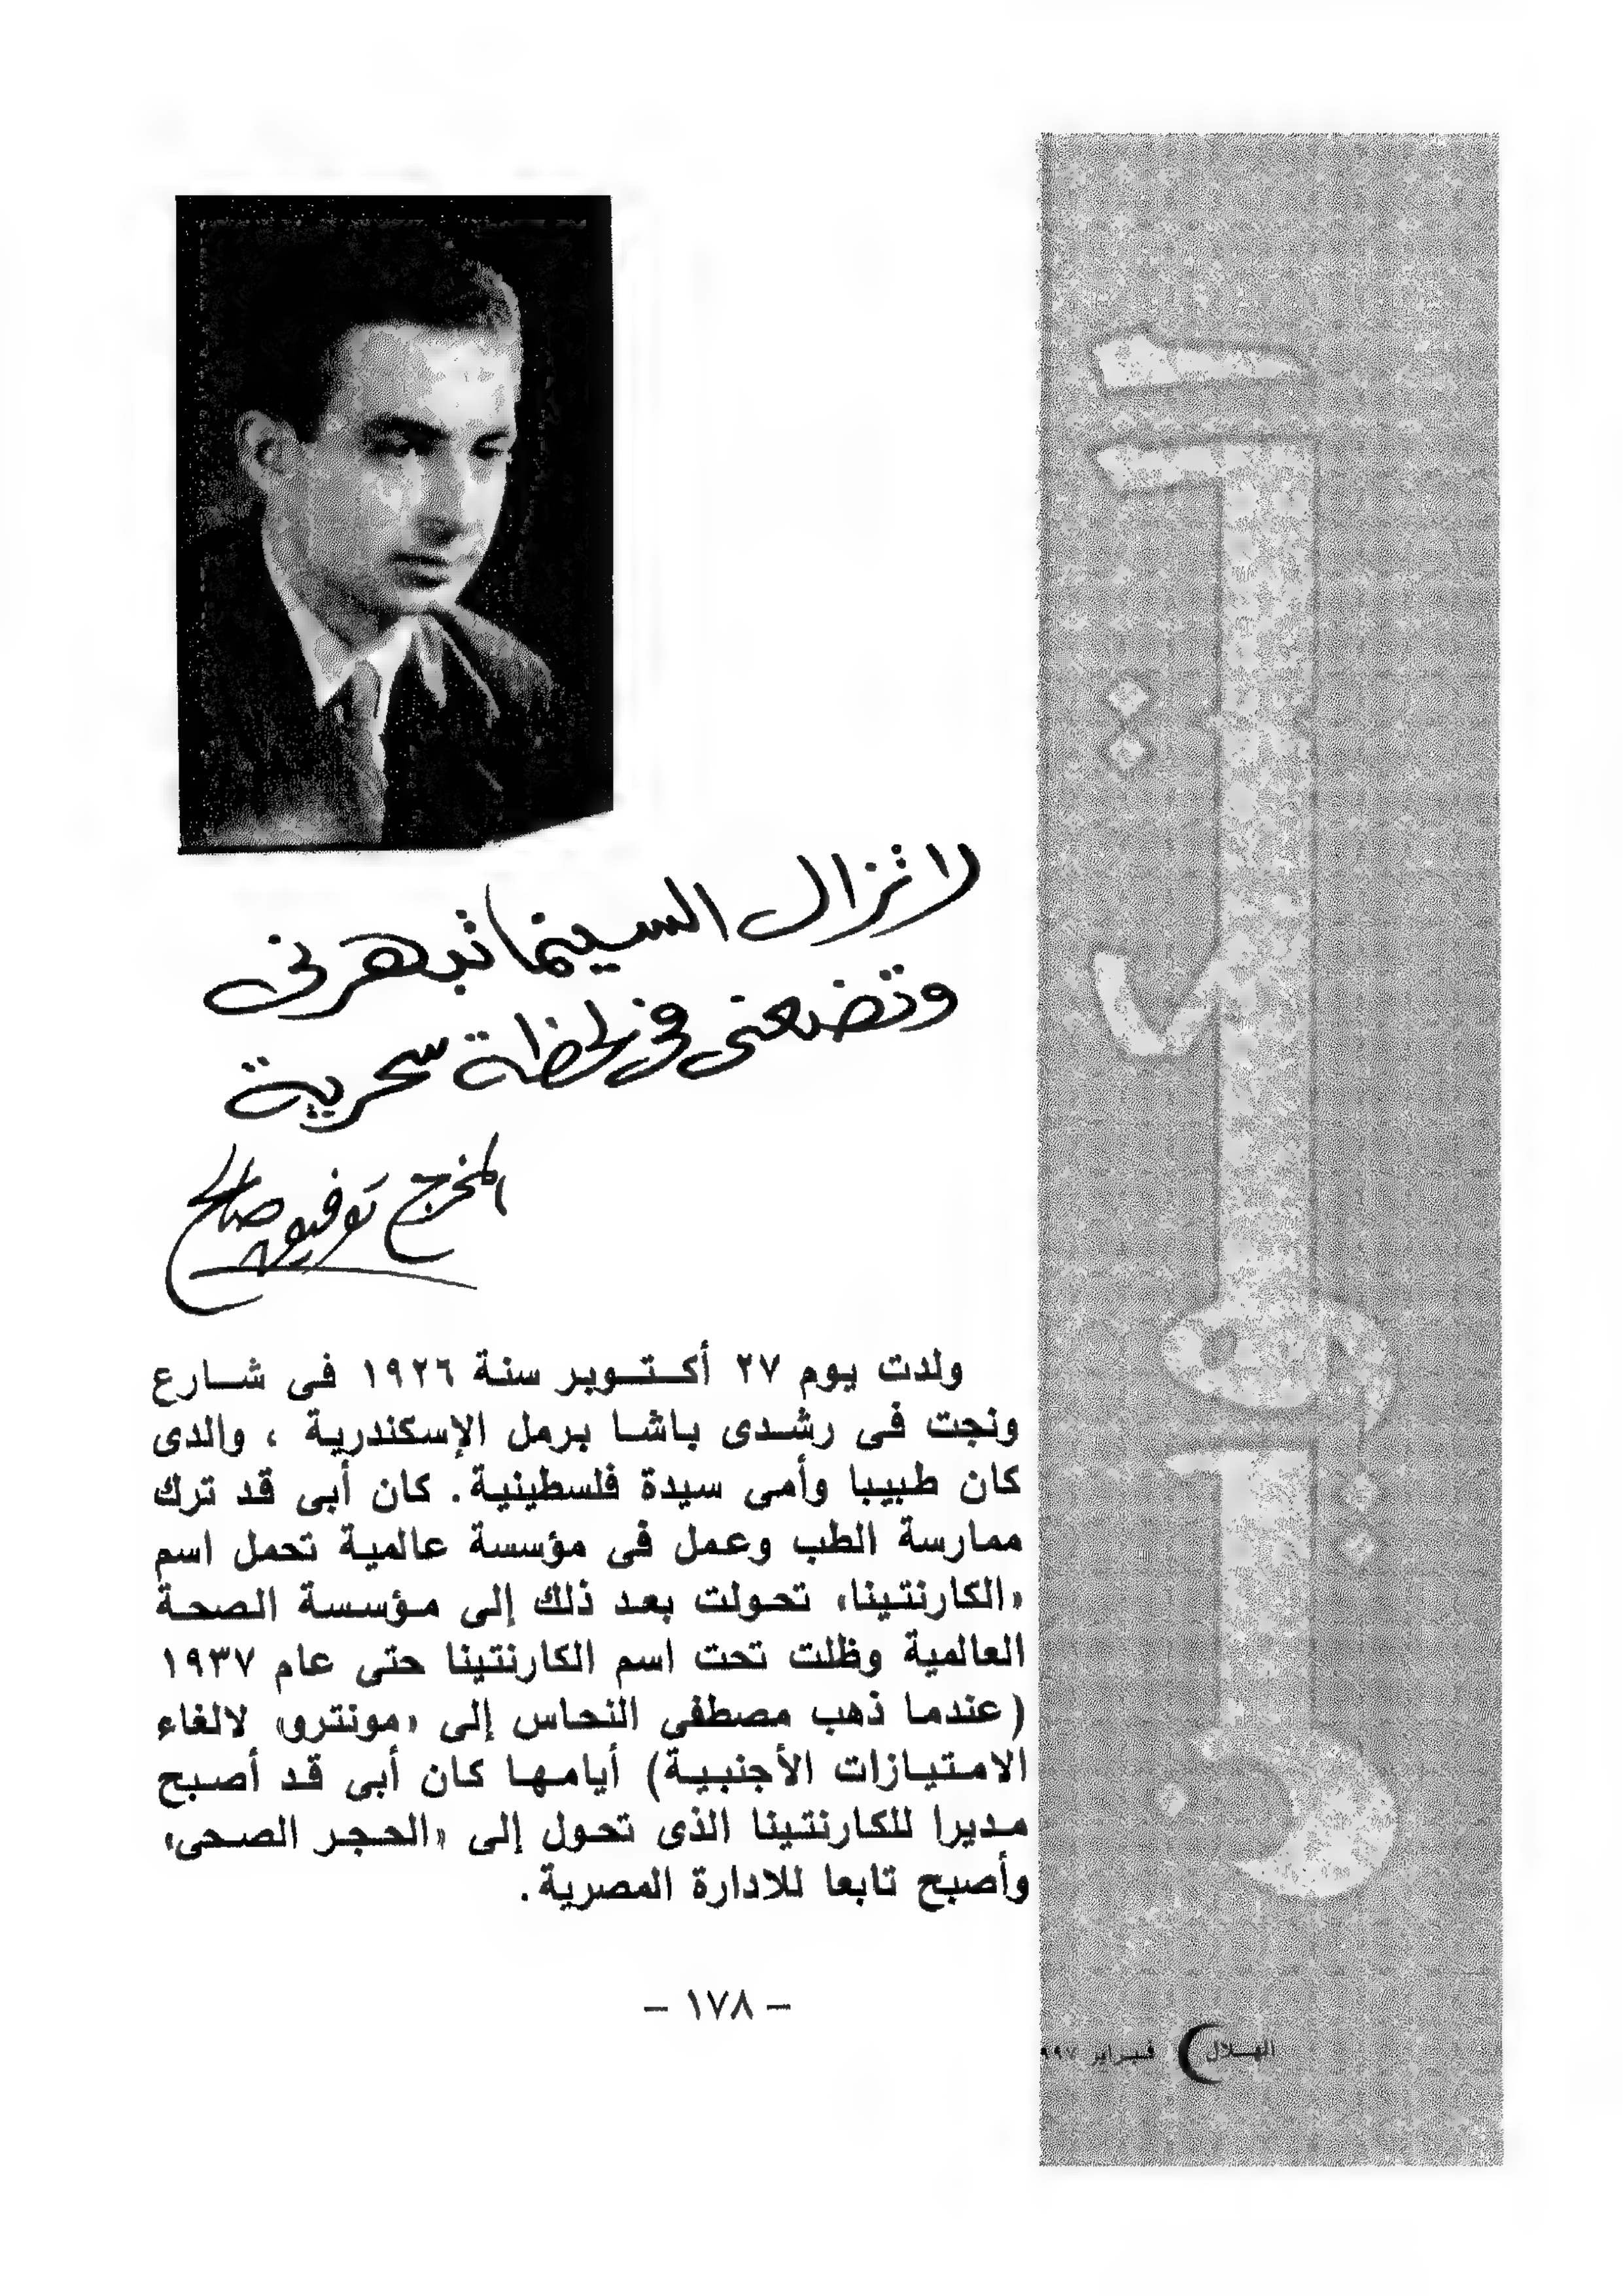 التكوين
لا تزال السينما تبهرنى
وتضعنى فى لحظة سحرية
المخرج توفيق صالح
ولدت يوم ٢٧ أكتوبر سنة ١٩٢٦ فى شارع
ونجت فى رشدى باشا برمل الإسكندرية ، والدى
كان طبيبا وأمى سيدة فلسطينية. كان أبى قد ترك
ممارسة الطب وعمل فى مؤسسة عالمية تحمل اسم
«الكارنتينا» تحولت بعد ذلك إلى مؤسسة الصحة
العالمية وظلت تحت اسم الكارنتينا حتى عام ١٩٣٧
(عندما ذهب مصطفى النحاس إلى «مونترو» لالغاء
الامتيازات الأجنبية) أيامها كان أبى قد أصبح
مديرا للكارنتينا الذى تحول إلى «الحجر الصحى»
وأصبح تابعا للادارة المصرية.
– ١٧٨ –
الهلال فبراير ٩٩٧